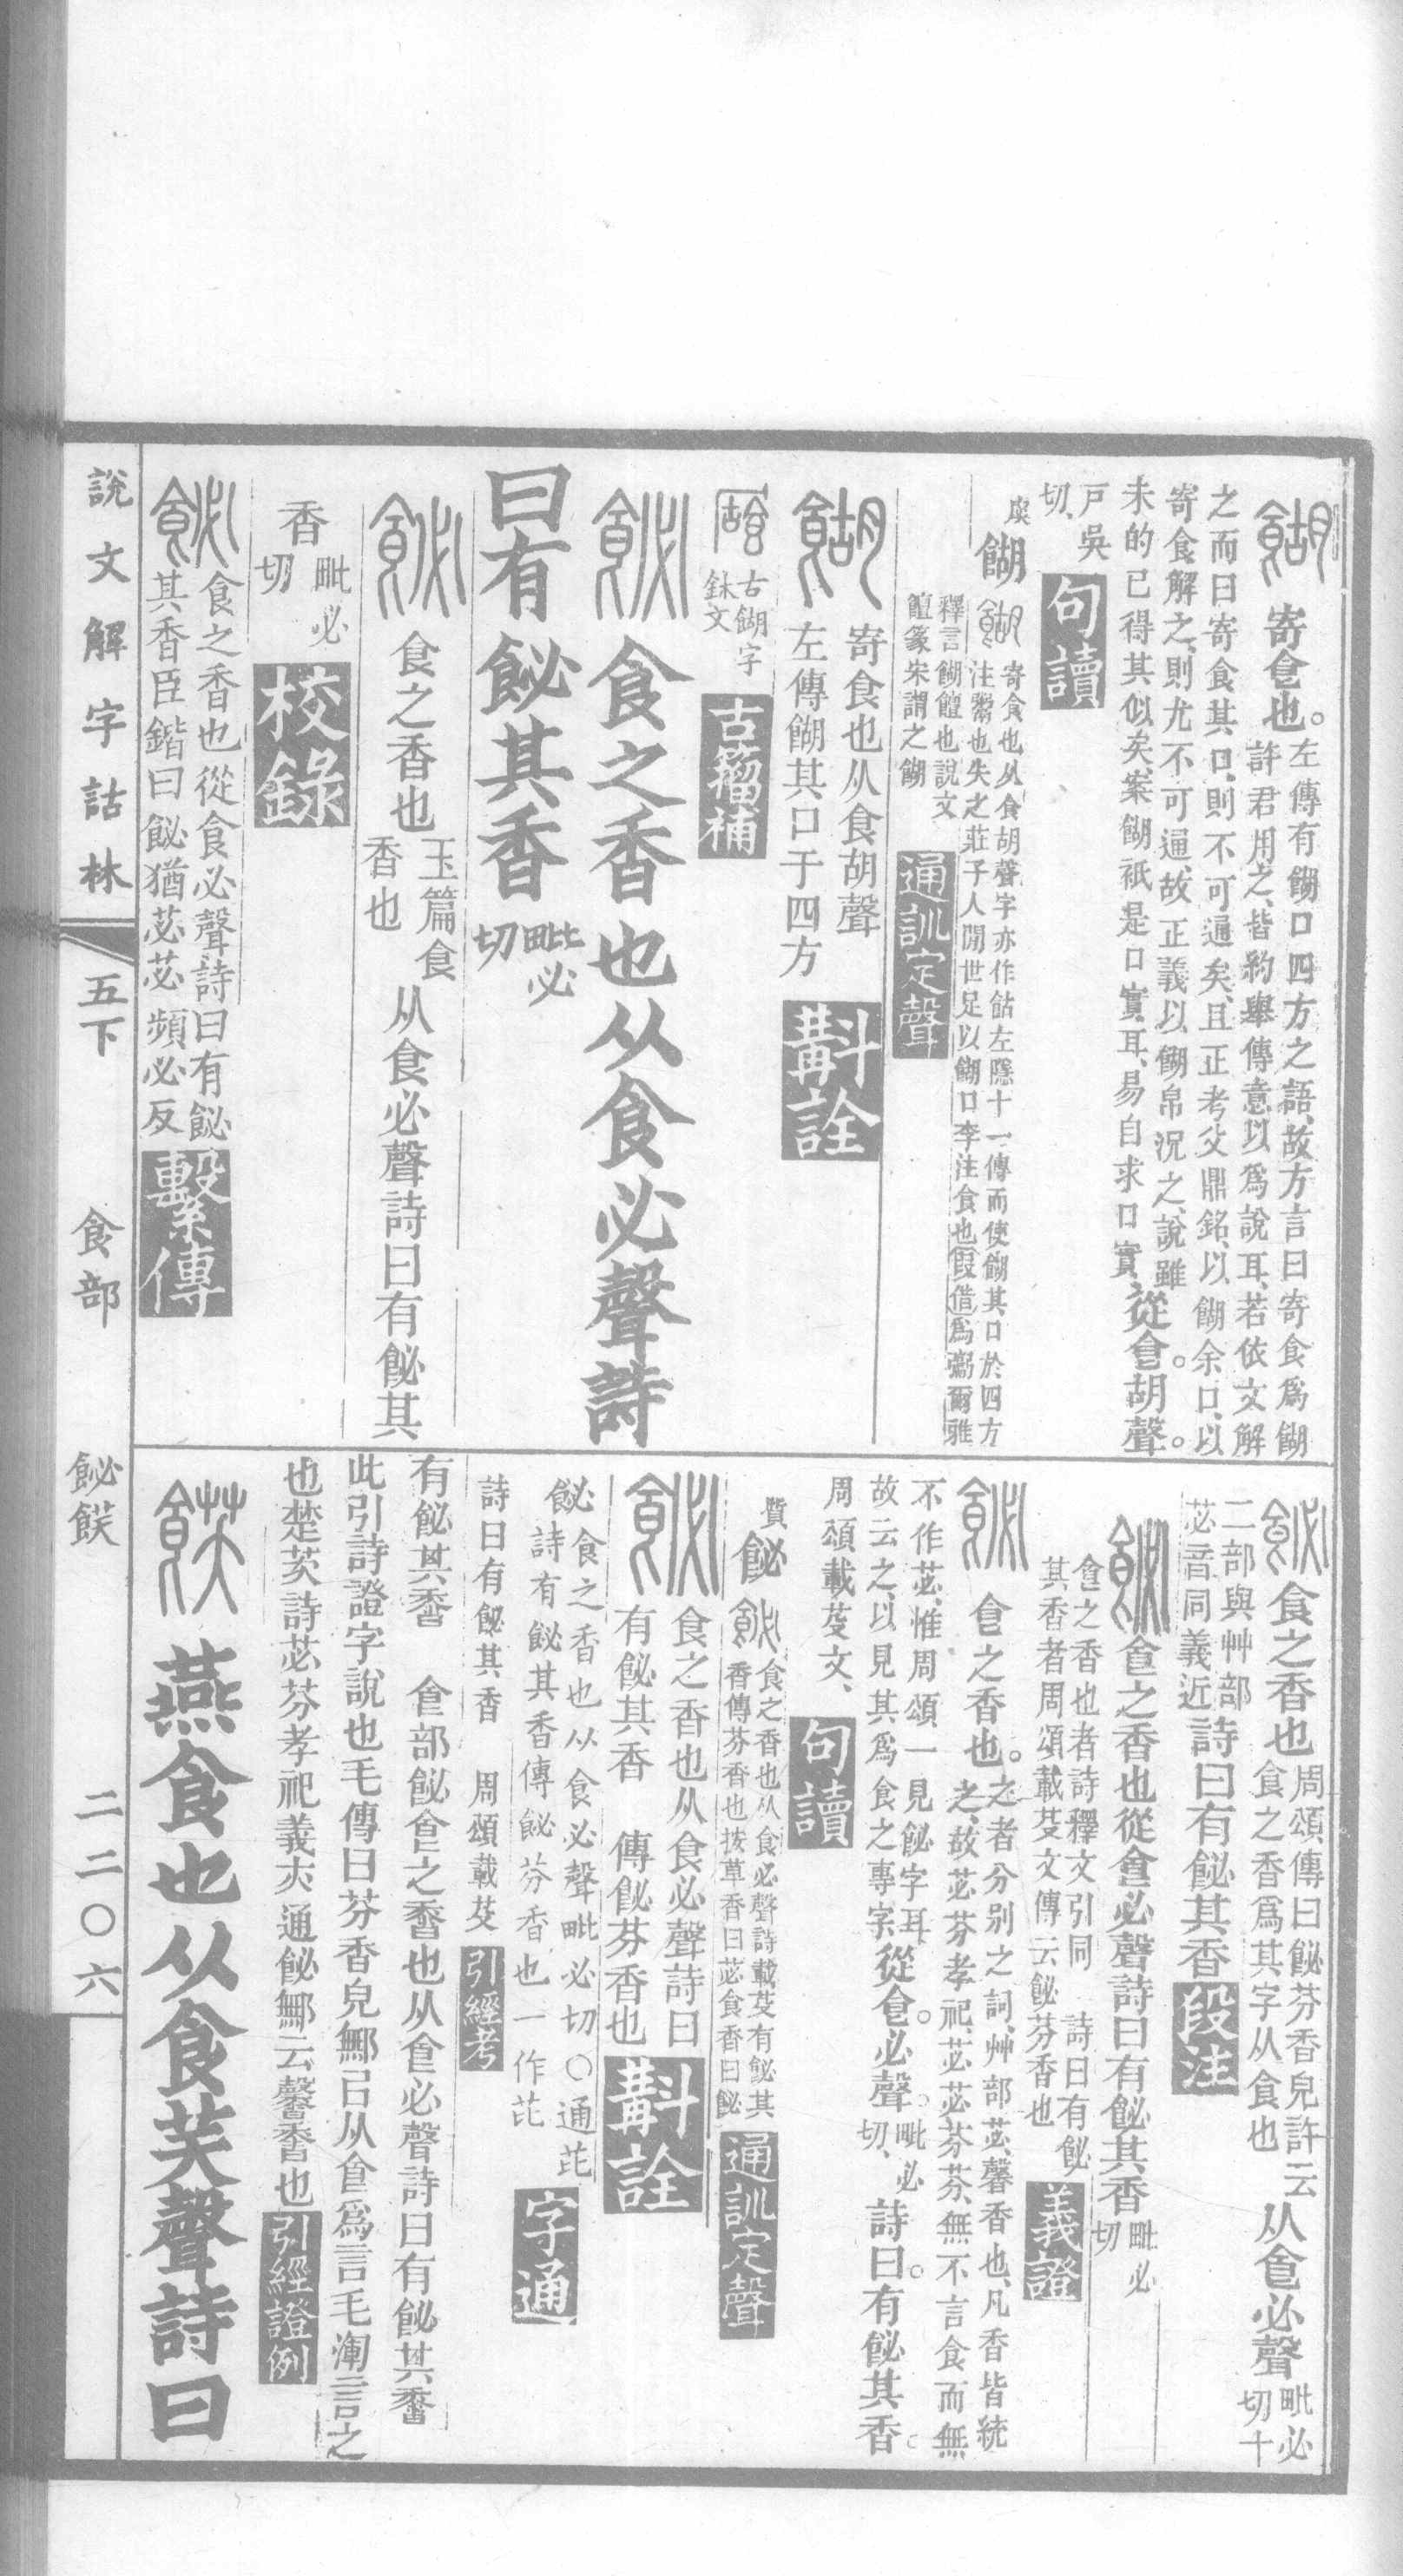 餬寄𠊊也。左傳有餬口四方之語、故方言曰寄食爲餬
許君用之、皆約舉傳意以爲說耳、若依文解
之而曰寄食其口、則不可通矣、且正考父鼎銘、以餬余口、以
寄食解之、則尤不可通、故正義以餬帛況之、說雖
未的已得其似矣、案餬衹是口實耳、易自求口實、從食。胡聲。
戶吳
切、
句讀
餬寄食也从食胡聲字亦作䬤左隱十一傳而使餬其口於四方
注鬻也失之莊子人閒世足以餬口李注食也假借爲鬻爾雅
釋言餬饘也說文
饘篆宋謂之餬
通訓定聲
餬寄食也从食胡聲
左傳餬其口于四方
斠詮
古餬字
鉥文
古籀補
䬛食之香也从食必聲詩
曰有䬛其香毗必
切
䬛食之香也玉篇食
香也从食必聲詩曰有䬛其
香毗必
切
校錄
䬛食之香也從食必聲詩曰有䬛
其香臣鍇曰䬛猶苾苾頻必反
繫傳
說文解字詁林
五下
食部
䬛䬇
二二〇六
䬛食之香也周頌傳曰䬛芬香皃許云
食之香爲其字从食也从食必聲毗必
切十
二部與艸部
苾音同義近詩曰有䬛其香
段注
䬛食之香也從食必聲詩曰有䬛其香毗必
切
食之香也者詩釋文引同 詩曰有䬛
其香者周頌載芟文傳云䬛芬香也
義證
䬛食之香也。之者分別之詞、艸部苾、馨香也、凡香皆統
之、故苾芬孝祀、苾苾芬芬、無不言食而無
不作苾、惟周頌一見䬛字耳、
故云之、以見其爲食之專字、從食。必聲。毗必
切、詩曰。有䬛其香。
周頌載芟文、
句讀
䬛食之香也从食必聲詩載芟有䬛其
香傳芬香也按草香曰苾食香曰䬛
通訓定聲
䬛食之香也从食必聲詩曰
有䬛其香 傳䬛芬香也
斠詮
䬛食之香也从食必聲毗必切〇通苾
詩有䬛其香傳䬛芬香也一作苾
字通
詩曰有䬛其香 周頌載芟
引經考
有䬛其香 食部䬛食之香也从食必聲詩曰有䬛其香
此引詩證字說也毛傳曰芬香皃鄦㠯从食爲言毛渾言之
也楚茨詩苾芬孝祀義亦通䬛鄦云馨香也
引經證例
䬇燕食也从食芺聲詩曰